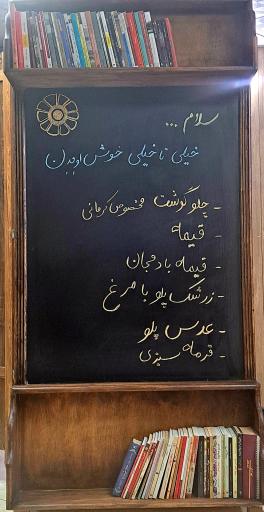 سلام ...
خیلی تا خیلی خوش اومدین
- چلو گوشت مخصوص کرمانی
- قیمه
- قیمه بادمجان
- زرشک پلو با مرغ
- عدس پلو
- قرمه سبزی